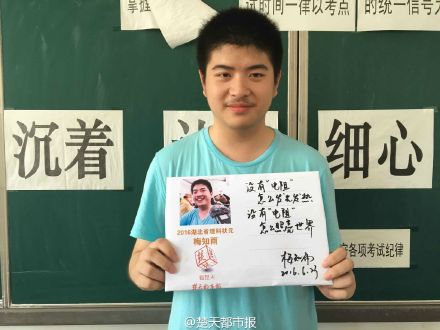 掌握
试时间一律以考点
的统一信号为
沉着
细心
2016湖北省理科状元
梅知雨
没有“电阻”
怎么发光发热
没有“电阻”
怎么照亮世界
梅知雨
2016.6.23
楚天都市报
考各项考试纪律
@楚天都市报